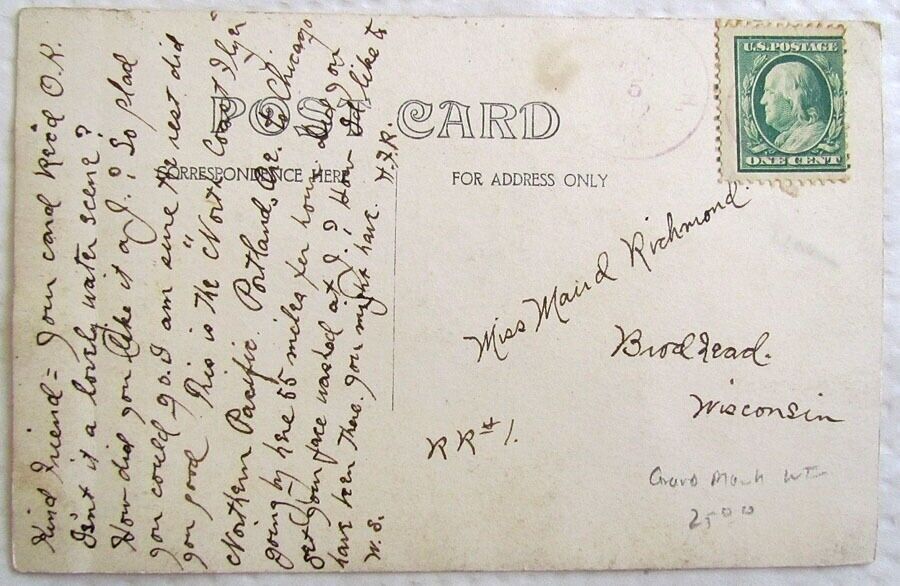 POST CARD
CORRESPONDENCE HERE
FOR ADDRESS ONLY
U.S. POSTAGE
ONE CENT
Kind Friend = Your card Rec'd O.K.
Isn't it a lovely water scene?
How did you like it at J.? So glad
you could go. I am sure the rest did
you good. This is the "North Coast
Northern Pacific. Portland, Ore. to Chicago
going by here 55 miles per hour. Did you
get your face washed at J.? How I'd like to
have been there. you might have. H.F.R.
W.S.
Miss Maud Richmond
Brodhead.
Wisconsin
RR# 1.
25 00